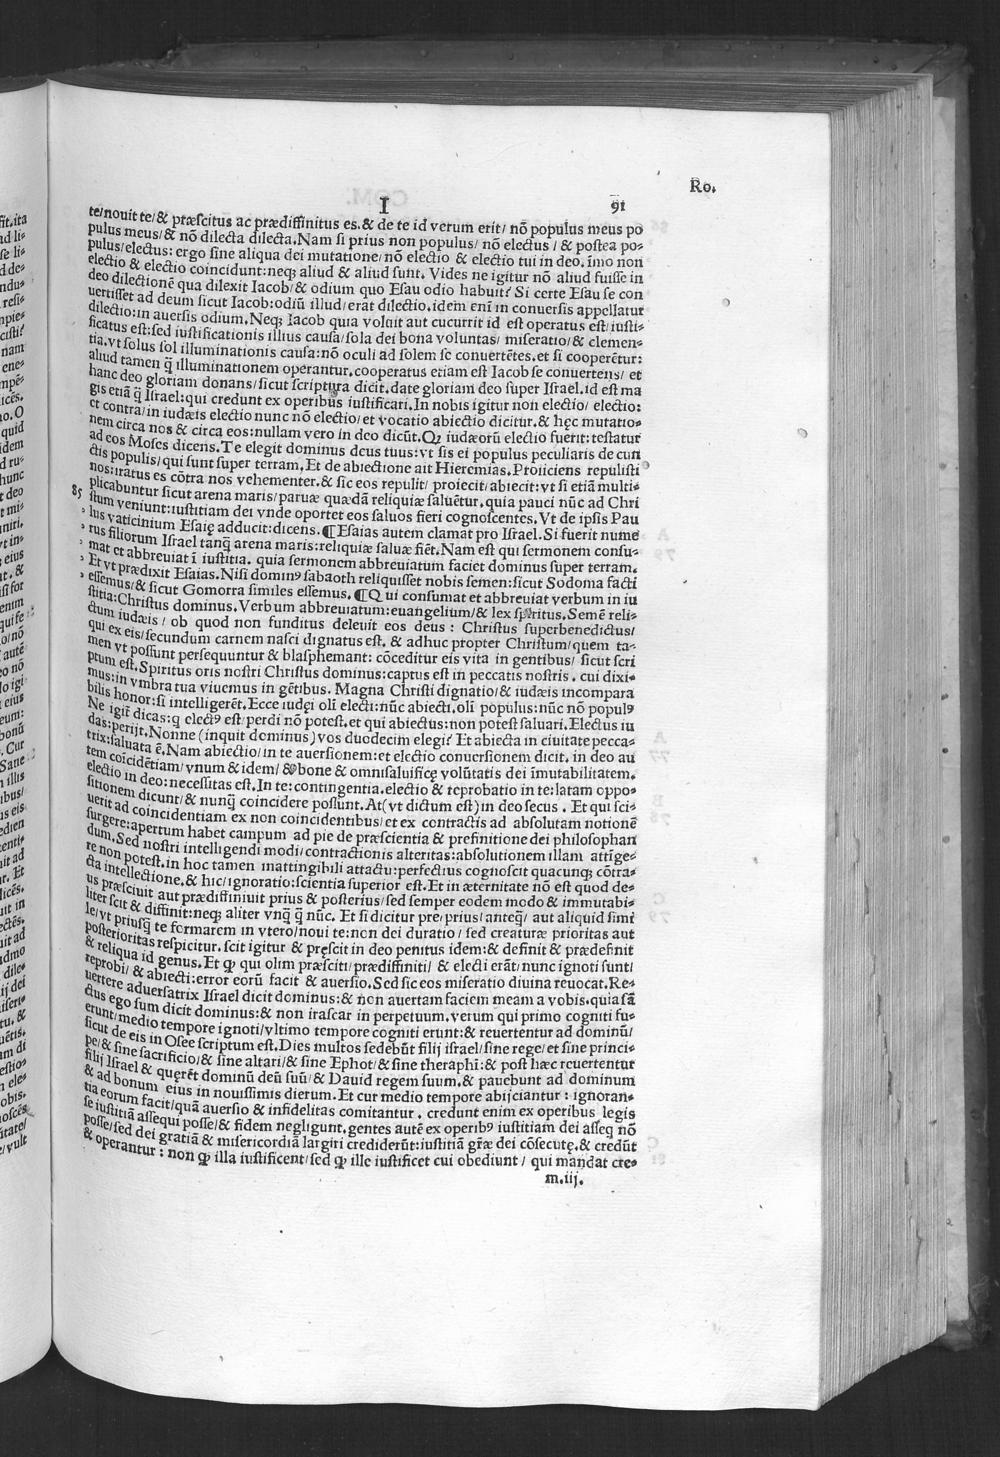 Ro.
I 91
te/nouit te/ & præscitus ac prædiffinitus es. & de te id verum erit/ nõ populus meus po
pulus meus/ & nõ dilecta dilecta. Nam si prius non populus/ nõ electus / & postea po-
pulus/electus: ergo sine aliqua dei mutatione/ nõ electio & electio tui in deo. imo non
electio & electio coincidunt: neqꝫ aliud & aliud sunt. Vides ne igitur nõ aliud fuisse in
deo dilectionē qua dilexit Iacob/ & odium quo Esau odio habuit? Si certe Esau se con
uertisset ad deum sicut Iacob: odiũ illud/ erat dilectio. idem enĩ in conuersis appellatur
dilectio: in auersis odium. Neqꝫ Iacob quia voluit aut cucurrit id est operatus est/ iusti-
ficatus est: sed iustificationis illius causa/ sola dei bona voluntas/ miseratio/ & clemen-
tia. vt solus sol illuminationis causa: nõ oculi ad solem se conuertētes. et si cooperētur:
aliud tamen q̃ illuminationem operantur. cooperatus etiam est Iacob se conuertens/ et
hanc deo gloriam donans/ sicut scriptura dicit. date gloriam deo super Israel. id est ma
gis etiã q̃ Israel: qui credunt ex operibus iustificari. In nobis igitur non electio/ electio:
et contra/ in iudæis electio nunc nõ electio/ et vocatio abiectio dicitur. & hęc mutatio-
nem circa nos & circa eos: nullam vero in deo dicũt. Qꝫ iudæorũ electio fuerit: testatur
ad eos Moses dicens. Te elegit dominus deus tuus: vt sis ei populus peculiaris de cun
ctis populis/ qui sunt super terram. Et de abiectione ait Hieremias. Proiiciens repulisti
nos: iratus es cõtra nos vehementer. & sic eos repulit/ proiecit/ abiecit: vt si etiã multi-
85 plicabuntur sicut arena maris/ paruæ quædã reliquiæ saluētur. quia pauci nũc ad Chri
stum veniunt: iustitiam dei vnde oportet eos saluos fieri cognoscentes. Vt de ipsis Pau
lus vaticinium Esaię adducit: dicens. ¶ Esaias autem clamat pro Israel. Si fuerit nume
rus filiorum Israel tanq̃ arena maris: reliquiæ saluæ fiēt. Nam est qui sermonem consu-
mat et abbreuiat ĩ iustitia. quia sermonem abbreuiatum faciet dominus super terram.
Et vt prædixit Esaias. Nisi dominꝰ sabaoth reliquisset nobis semen: sicut Sodoma facti
essemus/ & sicut Gomorra similes essemus. ¶ Qui consumat et abbreuiat verbum in iu
stitia: Christus dominus. Verbum abbreuiatum: euangelium/ & lex spiritus. Semē reli-
ctum iudæis / ob quod non funditus deleuit eos deus : Christus superbenedictus/
qui ex eis/ secundum carnem nasci dignatus est. & adhuc propter Christum/ quem ta-
men vt possunt persequuntur & blasphemant: cõceditur eis vita in gentibus/ sicut scri
ptum est. Spiritus oris nostri Christus dominus: captus est in peccatis nostris . cui dixi-
mus: in vmbra tua viuemus in gētibus. Magna Christi dignatio/ & iudæis incompara
bilis honor: si intelligerēt. Ecce iudęi oli electi: nũc abiecti. oli populus: nũc nõ populꝰ
Ne igit̃ dicas: q electꝰ est/ perdi nõ potest. et qui abiectus: non potest saluari. Electus iu
das: perijt. Nonne (inquit dominus) vos duodecim elegi? Et abiecta in ciuitate pecca-
trix: saluata ē. Nam abiectio/ in te auersionem: et electio conuersionem dicit. in deo au
tem coicidētiam/ vnum & idem/ & bone & omnisaluificę volũtatis dei ĩmutabilitatem.
electio in deo: necessitas est. In te: contingentia. electio & reprobatio in te: latam oppo-
sitionem dicunt/ & nunq̃ coincidere possunt. At (vt dictum est) in deo secus . Et qui sci-
uerit ad coincidentiam ex non coincidentibus/ et ex contractis ad absolutam notionē
surgere: apertum habet campum ad pie de præscientia & prefinitione dei philosophan
dum. Sed nostri intelligendi modi/ contractionis alteritas: absolutionem illam attĩge-
re non potest. in hoc tamen inattingibili attactu: perfectius cognoscit quacunqꝫ cõtra-
cta intellectione. & hic/ ignoratio: scientia superior est. Et in æternitate nõ est quod de-
us præsciuit aut prædiffiniuit prius & posterius/ sed semper eodem modo & immutabi-
liter scit & diffinit: neqꝫ aliter vnq̃ q̃ nũc. Et si dicitur pre/ prius/ anteq̃/ aut aliquid simi
le/ vt priusq̃ te formarem in vtero/ noui te: non dei duratio/ sed creaturæ prioritas aut
posterioritas respicitur. scit igitur & pręscit in deo penitus idem: & definit & prædefinit
& reliqua id genus. Et ꝙ qui olim præsciti/ prædiffiniti/ & electi erãt/ nunc ignoti sunt/
reprobi/ & abiecti: error eorũ facit & auersio. Sed sic eos miseratio diuina reuocat. Re-
uertere aduersatrix Israel dicit dominus: & non auertam faciem meam a vobis. quia sã
ctus ego sum dicit dominus: & non irascar in perpetuum. verum qui primo cogniti fu-
erunt/ medio tempore ignoti/ vltimo tempore cogniti erunt: & reuertentur ad dominũ/
sicut de eis in Osee scriptum est. Dies multos sedebũt filij israel/ sine rege/ et sine princi-
pe/ & sine sacrificio/ & sine altari/ & sine Ephot/ & sine theraphi: & post hæc reuertentur
filij Israel & quęrēt dominũ deũ suũ/ & Dauid regem suum. & pauebunt ad dominum
& ad bonum eius in nouissimis dierum. Et cur medio tempore abijciantur : ignoran-
tia eorum facit/ quã auersio & infidelitas comitantur . credunt enim ex operibus legis
se iustitiã assequi posse/ & fidem negligunt. gentes autē ex operibꝰ iustitiam dei asseq nõ
posse/ sed dei gratiã & misericordiã largiri crediderũt: iustitiã grãe dei cõsecutę. & credũt
& operantur : non ꝙ illa iustificent/ sed ꝙ ille iustificet cui obediunt / qui mandat cre-
m.iij.